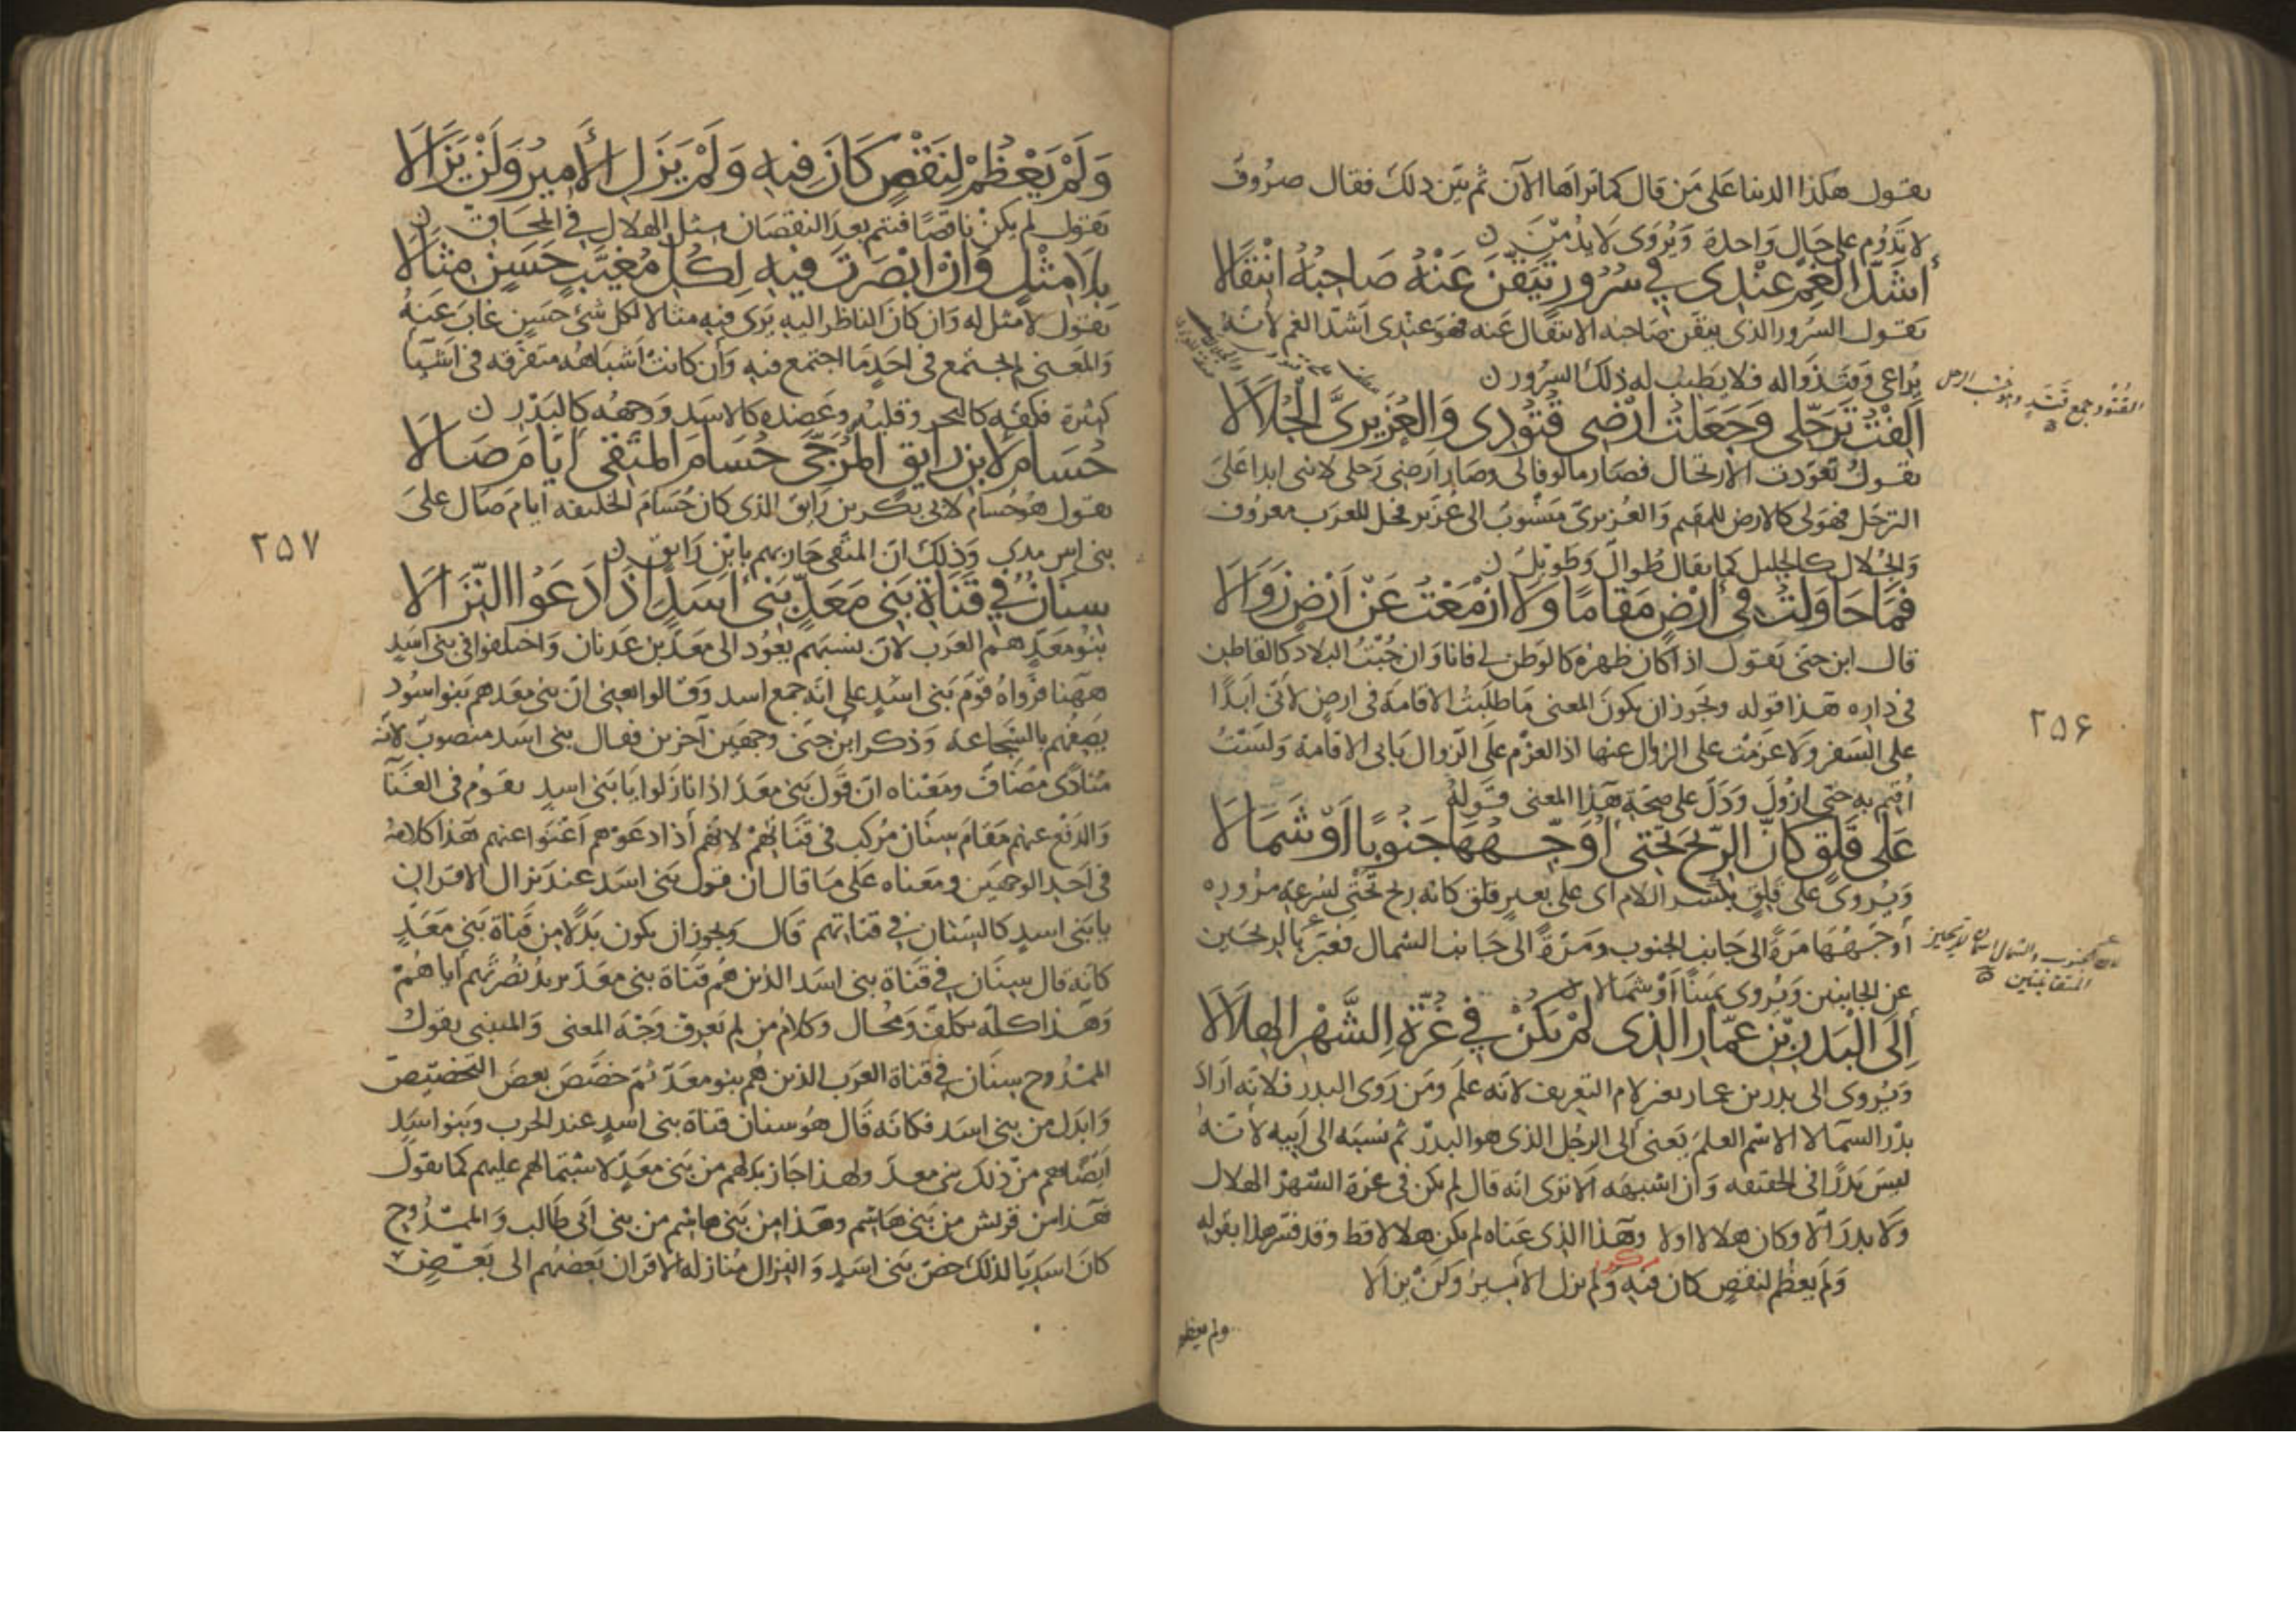 يقول هكذا الدنيا على من قال كما تراها الآن ثم بين ذلك فقال صروف
لا يدوم على حال واحدة وَيُرْوَى لا يدمن
أَشَدُّ الْغَمِّ عِنْدِى فِي سُرُورٍ تَيَقَّنَ عَنْهُ صَاحِبُهُ انْتِقَالَا
يقول السرور الذى يتقن صاحبه الانتقال عنه فهو عندى اشد الغم لانه
يراعى وقت زواله فلا يطيب له ذلك السرور
القتود جمع قتد وهو خشب الرحل
أَلِفْتُ تَرَحُّلِى وَجَعَلْتُ أَرْضِى قُتُودِى وَالْغُرَيْرِىَّ الْجُلَالَا
يقول تعودت الارتحال فصار مالوفا لى وصار ارضى رحلى لانى ابدا على
الترحل فهو لى كالارض للمقيم والغريرى منسوب الى غرير فحل للعرب معروف
والجلال كالجليل كما يقال طُوال وطويل
فَمَا حَاوَلْتُ فِى أَرْضٍ مَقَامًا وَلَا أَزْمَعْتُ عَنْ أَرْضٍ زَوَالَا
قال ابن جنى يقول اذا كان ظهره كالوطن لى فانا وان جبت البلاد كالقاطن
فى داره هذا قوله ويجوز ان يكون المعنى ما طلبت الاقامة فى ارض لانى ابدًا
على السفر ولا عزمت على الزوال عنها اذ العزم على الزوال يابى الاقامة ولست
اقيم به حتى ازول ودل على صحة هذا المعنى قوله
عَلَى قَلَقٍ كَأَنَّ الرِّيحَ تَحْتِى أُوَجِّهُهَا جَنُوبًا أَوْ شَمَالَا
ويروى على قلق بكسر اللام اى على بعير قلق كانه ريح تحتى لسرعة مروره
أوجهها مرة الى جانب الجنوب ومرة الى جانب الشمال فعبر بالريحين
عن الجانبين ويروى يمينًا أو شمالا
إِلَى الْبَدْرِ بْنِ عَمَّارِ الَّذِى لَمْ يَكُنْ فِي غُرَّةِ الشَّهْرِ الْهِلَالَا
ويروى الى بدر بن عمار بغير لام التعريف لانه علم ومن روى البدر فلانه اراد
بدر السمآ لا الاسم العلم يعنى الى الرجل الذى هو البدر ثم نسبه الى ابيه لانه
ليس بدرًا فى الحقيقه وان اشبهه الا ترى انه قال لم يكن فى غرة الشهر الهلال
ولا بدر الا وكان هلالا اولا وهذا الذى عناه لم يكن هلالا قط وقد فسر هذا بقوله
ولم يعظم لنقص كان فيه ولم يزل الأمير ولن يزالا
ولم يعظم
٢٥۶
وَلَمْ يَعْظُمْ لِنَقْصٍ كَانَ فِيهِ وَلَمْ يَزَلِ الْأَمِيرُ وَلَنْ يَزَالَا
يقول لم يكن ناقصًا فتم بعد النقصان مثل الهلال فى المحاق
بِلَا مِثْلٍ وَإِنْ أَبْصَرْتَ فِيهِ لِكُلِّ مُغَيَّبٍ حَسَنٍ مِثَالَا
يقول لا مثل له وان كان الناظر اليه يرى فيه مثالا لكل شئ حسن غاب عنه
والمعنى لم يجتمع فى احد ما اجتمع فيه وان كانت اشباهه متفرقه فى اشيآ
كثيرة فكفه كالبحر وقلبه وعضده كالاسد ووجهه كالبدر
حُسَامٌ لِابْنِ رَايِقٍ الْمُرَجَّى حُسَامِ الْمُتَّقِى أَيَّامَ صَالَا
يقول هو حسام لابى بكر بن رايق الذى كان حسام الخليفه ايام صال على
وذلك ان المتقى حاربهم بابن رايق
سِنَانٌ فِي قَنَاةِ بَنِى مَعَدٍّ بَنِى أَسَدٍ إِذَا دَعَوُا النِّزَالَا
بنو معد هم العرب لان نسبهم يعود الى معد بن عدنان واختلفوا فى بنى اسد
ههنا فرواه قوم بنى اسد على انه جمع اسد وقالوا يعنى ان بنى معد هم بنو اسود
يصفهم بالشجاعة وذكر ابن جنى وجهين آخرين فقال بنى اسد منصوب لانه
منادى مضاف ومعناه ان قول بنى معد اذا نازلوا يا بنى اسد يقوم فى الغنآ
والدفع عنهم مقام سنان مركب فى قناتهم لانهم اذا دعوهم اغنوا عنهم هذا كلامه
فى احد الوجهين ومعناه على ما قال ان قول بنى اسد عند نزال الاقران
يا بنى اسد كالسنان فى قناتهم قال ويجوز ان يكون بدلا من قناة بنى معد
كانه قال سنان فى قناة بنى اسد الذين هم قناة بنى معد يريد نصرتهم اياهم
وهذا كله تكلف ومحال وكلام من لم يعرف وجه المعنى والمتنبى يقول
الممدوح سنان فى قناة العرب الذين هم بنو معد ثم خصص بعض التخصيص
وابدل من بنى اسد فكانه قال هو سنان قناة بنى اسد عند الحرب وبنو اسد
ايضا هم من ذلك بنى معد ولهذا جاز بدلهم من بنى معد لاشتمالهم عليهم كما يقول
هذا من قريش من بنى هاشم وهذا من بنى هاشم من بنى ابى طالب والممدوح
كان اسديا لذلك خص بنى اسد والنزال منازلة الاقران بعضهم الى بعض
٢٥٧